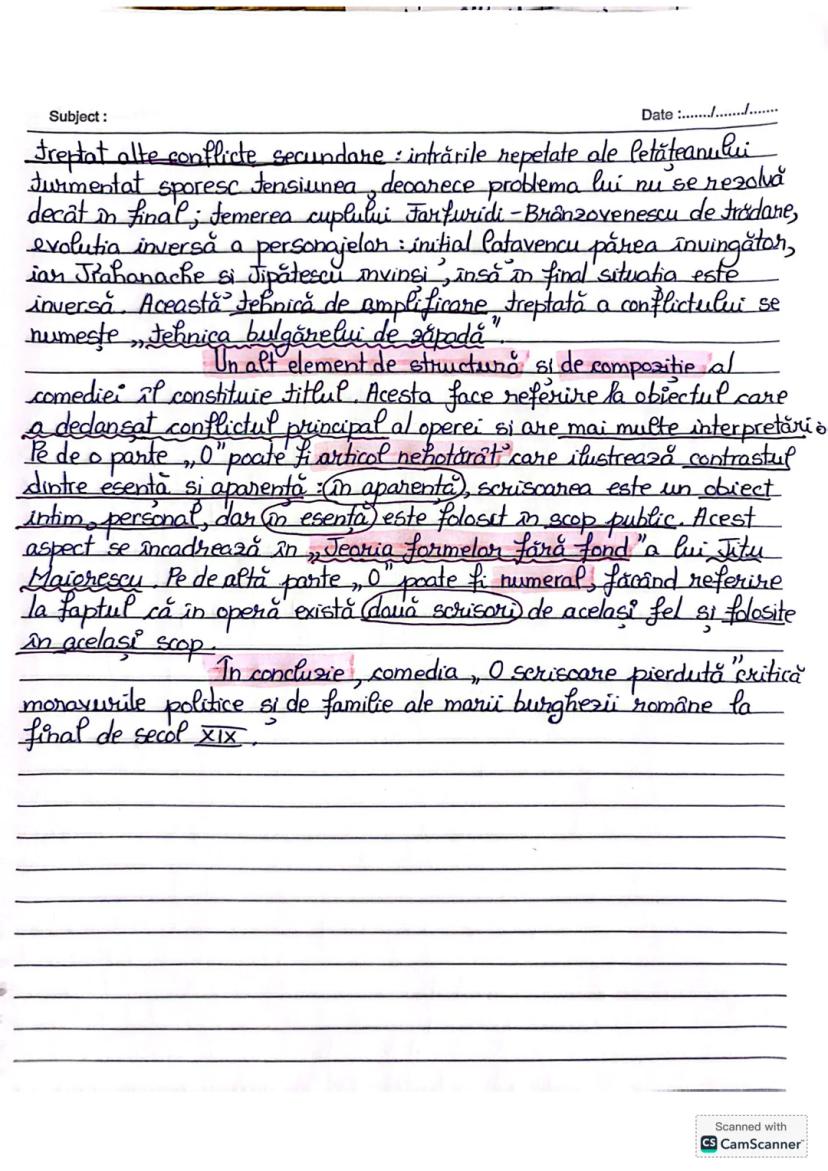 Subject :
Date :......./......./.......
treptat alte conflicte secundare : intrările repetate ale Cetățeanului
turmentat sporesc tensiunea, deoarece problema lui nu se rezolvă
decât în final; temerea cuplului Farfuridi - Brânzovenescu de trădare,
evoluția inversă a personajelor : inițial Catavencu părea învingător,
iar Trahanache și Tipătescu învinși, însă în final situația este
inversă. Această tehnică de amplificare treptată a conflictului se
numește „tehnica bulgărelui de zăpadă".
Un alt element de structură și de compoziție al
comediei îl constituie titlul. Acesta face referire la obiectul care
a declanșat conflictul principal al operei și are mai multe interpretări:
Pe de o parte „O" poate fi articol nehotărât care ilustrează contrastul
dintre esență și aparență : în aparență, scrisoarea este un obiect
intim, personal, dar în esență este folosit în scop public. Acest
aspect se încadrează în „Teoria formelor fără fond" a lui Titu
Maiorescu. Pe de altă parte „O" poate fi numeral, făcând referire
la faptul că în operă există două scrisori de același fel și folosite
în același scop.
În concluzie, comedia „O scrisoare pierdută" critică
moravurile politice și de familie ale marii burghezii române la
final de secol XIX.
Scanned with
CS CamScanner